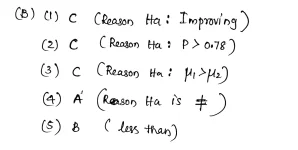 (B) (1) C (Reason Ha: Improving)
(2) C (Reason Ha: P > 0.78)
(3) C (Reason Ha: μ₁>μ₂)
(4) A (Reason Ha is ≠)
(5) B (less than)